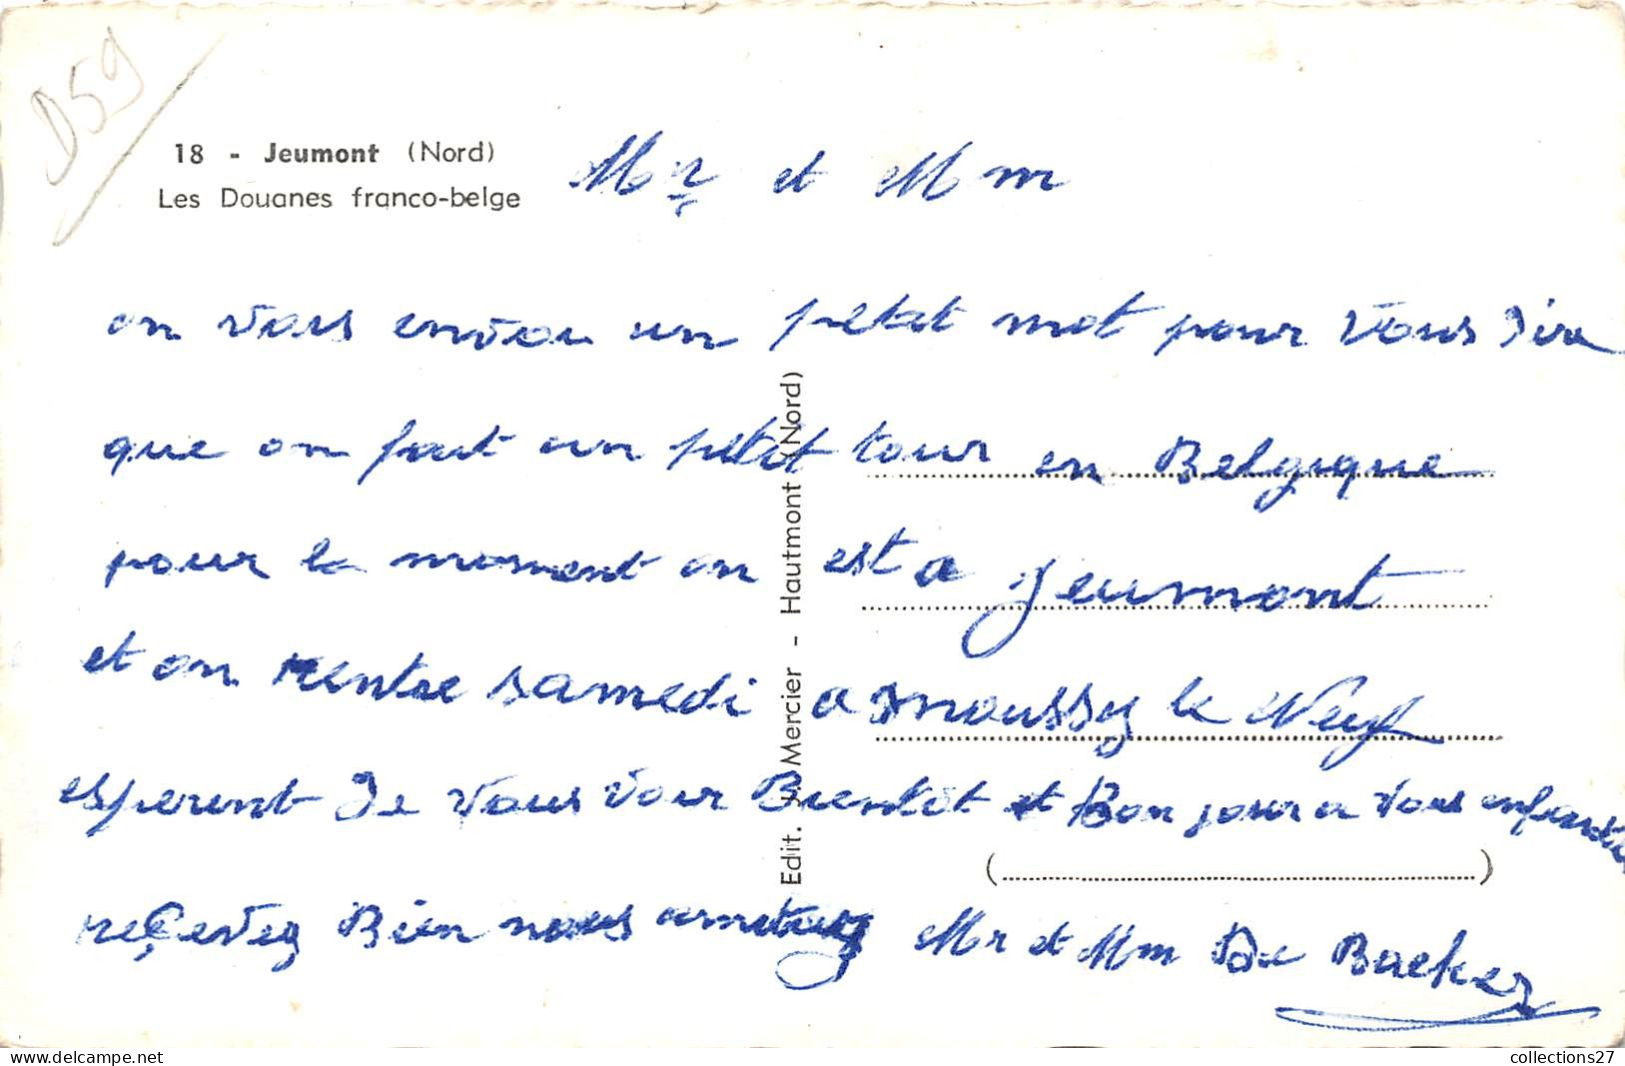 D59
18 - Jeumont (Nord)
Les Douanes franco-belge
Mr et Mm
on vous envou un petit mot pour vous dire
que on fait un petit tour en Belgique
pour le moment on est a Jeumont
et on rentre samedi a moussy le Neuf
esperent de vous voir Bientôt et Bonjour a vous enfants
reçevez Bien nous amitiez Mr et Mm De Backer
Edit. Mercier - Hautmont (Nord)
collections27